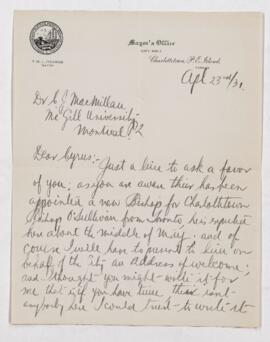 Mayor's Office
Charlottetown, P.E. Island,
Apl 23rd/31.
Dr C J MacMillan
Mc Gill University
Montreal P2
Dear Cyrus:- Just a line to ask a favor
of you; as you are aware there has been
appointed a new Bishop for Charlottetown
Bishop O'Sullivan from Toronto, he is expected
here about the middle of May. and of
course I will have to present to him on
behalf of the City an Address of welcome;
and I thought you might write it for
me that is if you have time this isnt
anybody here I could trust to write it